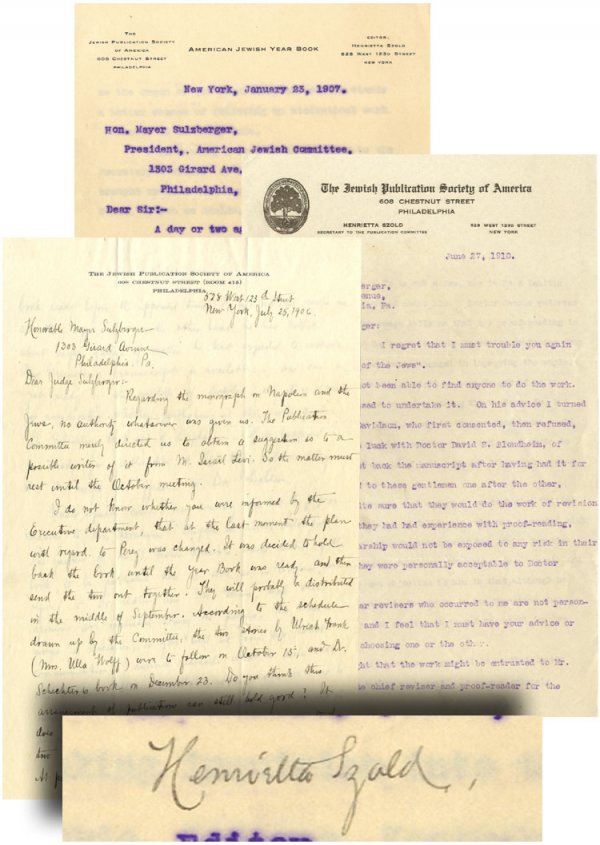 THE
JEWISH PUBLICATION SOCIETY
OF AMERICA
608 CHESTNUT STREET
PHILADELPHIA
AMERICAN JEWISH YEAR BOOK
EDITOR:
HENRIETTA SZOLD
528 WEST 123D STREET
NEW YORK
New York, January 23, 1907.
Hon. Mayer Sulzberger,
President,. American Jewish Committee.
1303 Girard Ave,
Philadelphia,
Dear Sir:-
A day or two ag
The Jewish Publication Society of America
608 CHESTNUT STREET
PHILADELPHIA
HENRIETTA SZOLD
SECRETARY TO THE PUBLICATION COMMITTEE
528 WEST 123D STREET
NEW YORK
June 27, 1910.
erger,
enue,
ia, Pa.
ger:
I regret that I must trouble you again
of the Jews".
ot been able to find anyone to do the work.
sed to undertake it. On his advice I turned
avidson, who first consented, then refused,
luck with Doctor David S. Blondheim, of
t back the manuscript after having had it for
d to these gentlemen one after the other,
ite sure that they would do the work of revision
they had had experience with proof-reading,
arship would not be exposed to any risk in their
they were personally acceptable to Doctor
er revisers who occurred to me are not person-
and I feel that I must have your advice or
choosing one or the other.
ght that the work might be entrusted to Mr.
e chief reviser and proof-reader for the
THE JEWISH PUBLICATION SOCIETY OF AMERICA
608 CHESTNUT STREET (ROOM 415)
PHILADELPHIA
528 West 123d Street
New York, July 25, 1906.
Honorable Mayer Sulzberger
1303 Girard Avenue
Philadelphia, Pa.
Dear Judge Sulzberger:-
Regarding the monograph on Napoleon and the
Jews, no authority whatsoever was given us. The Publication
Committee merely directed us to obtain a suggestion as to a
possible writer of it from M. Israel Lévi. So the matter must
rest until the October meeting.
I do not know whether you were informed by the
Executive department, that at the last moment the plan
with regard to Perez was changed. It was decided to hold
back the book until the Year Book was ready and then
send the two out together. They will probably be distributed
in the middle of September. According to the schedule
drawn up by the Committee, the two stories by Ulrich Frank
(Mrs. Ulla Wolff) were to follow on October 15, and Dr.
Schechter's book on December 23. Do you think this
arrangement of publication can still hold good? It
does
two
At p
Henrietta Szold.
Editor